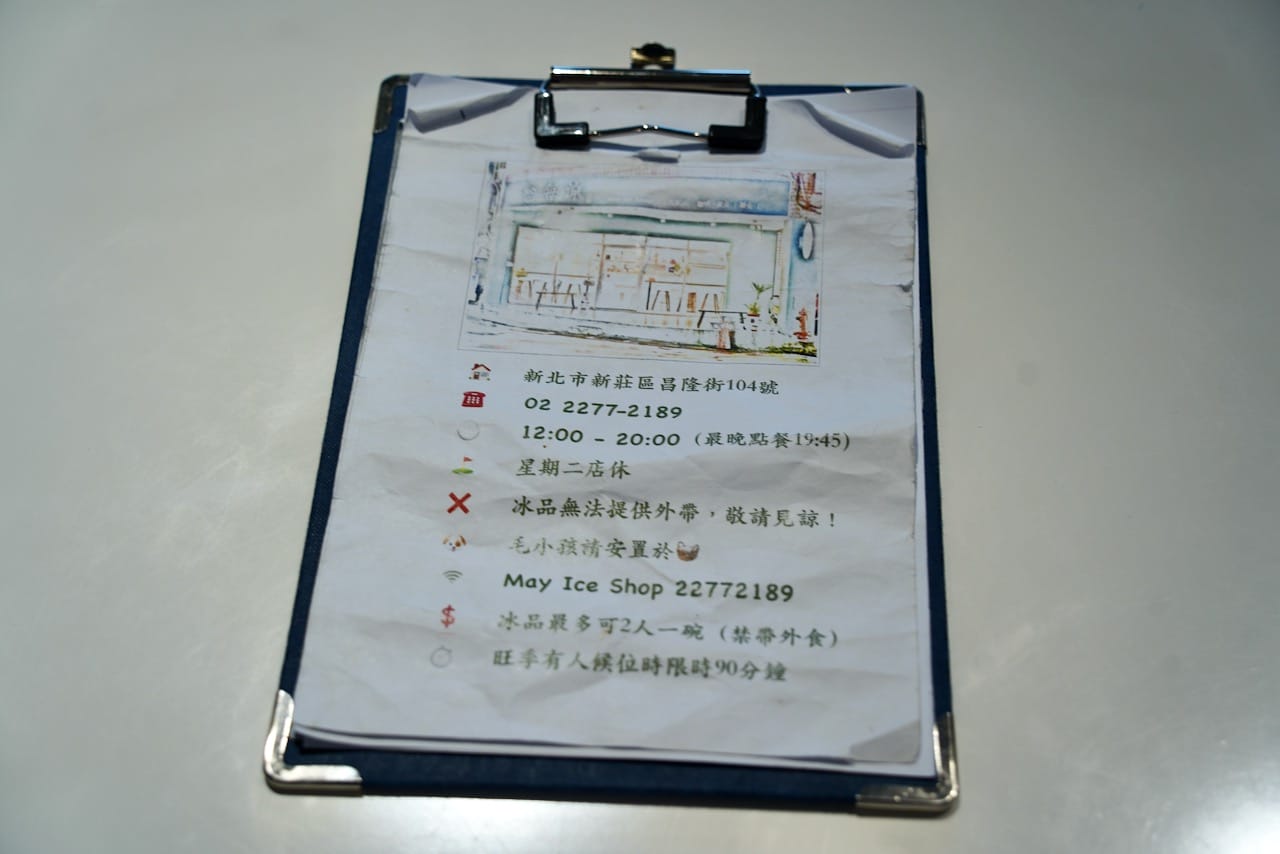 新北市新莊區昌隆街104號
02 2277-2189
12:00 - 20:00 (最晚點餐19:45)
星期二店休
冰品無法提供外帶,敬請見諒!
毛小孩請安置於
May Ice Shop 22772189
冰品最多可2人一碗 (禁帶外食)
旺季有人候位時限時90分鐘